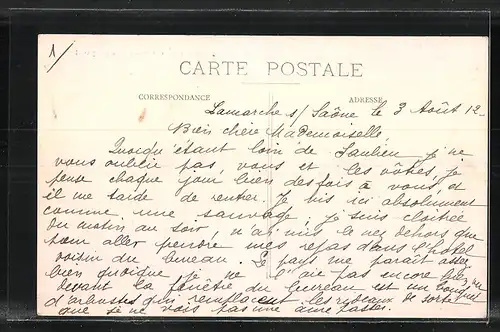 1/
CARTE POSTALE
CORRESPONDANCE
ADRESSE
Lamarche s/ Saône le 3 Août 12
Bien chère Mademoiselle,
Quoiqu'étant loin de Saulieu, je ne
vous oublie pas, vous et les vôtres, je
pense chaque jour bien des fois à vous, et
il me tarde de rentrer. Je vis ici absolument
comme une sauvage, je suis cloîtrée
du matin au soir, n'ai mis le nez dehors que
pour aller prendre mes repas dans l'hôtel
voisin du bureau. Le pays me paraît assez
bien quoique je ne l'aie pas encore
devant la fenêtre du bureau est un
d'arbustes qui remplacent les rideaux de sorte
que je ne vois pas une âme passer.